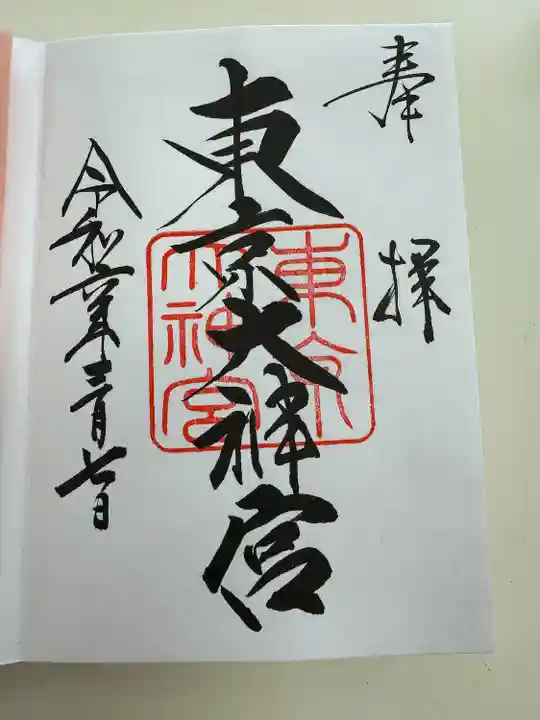 奉拝
東京大神宮
東京大神宮
令和六年三月七日